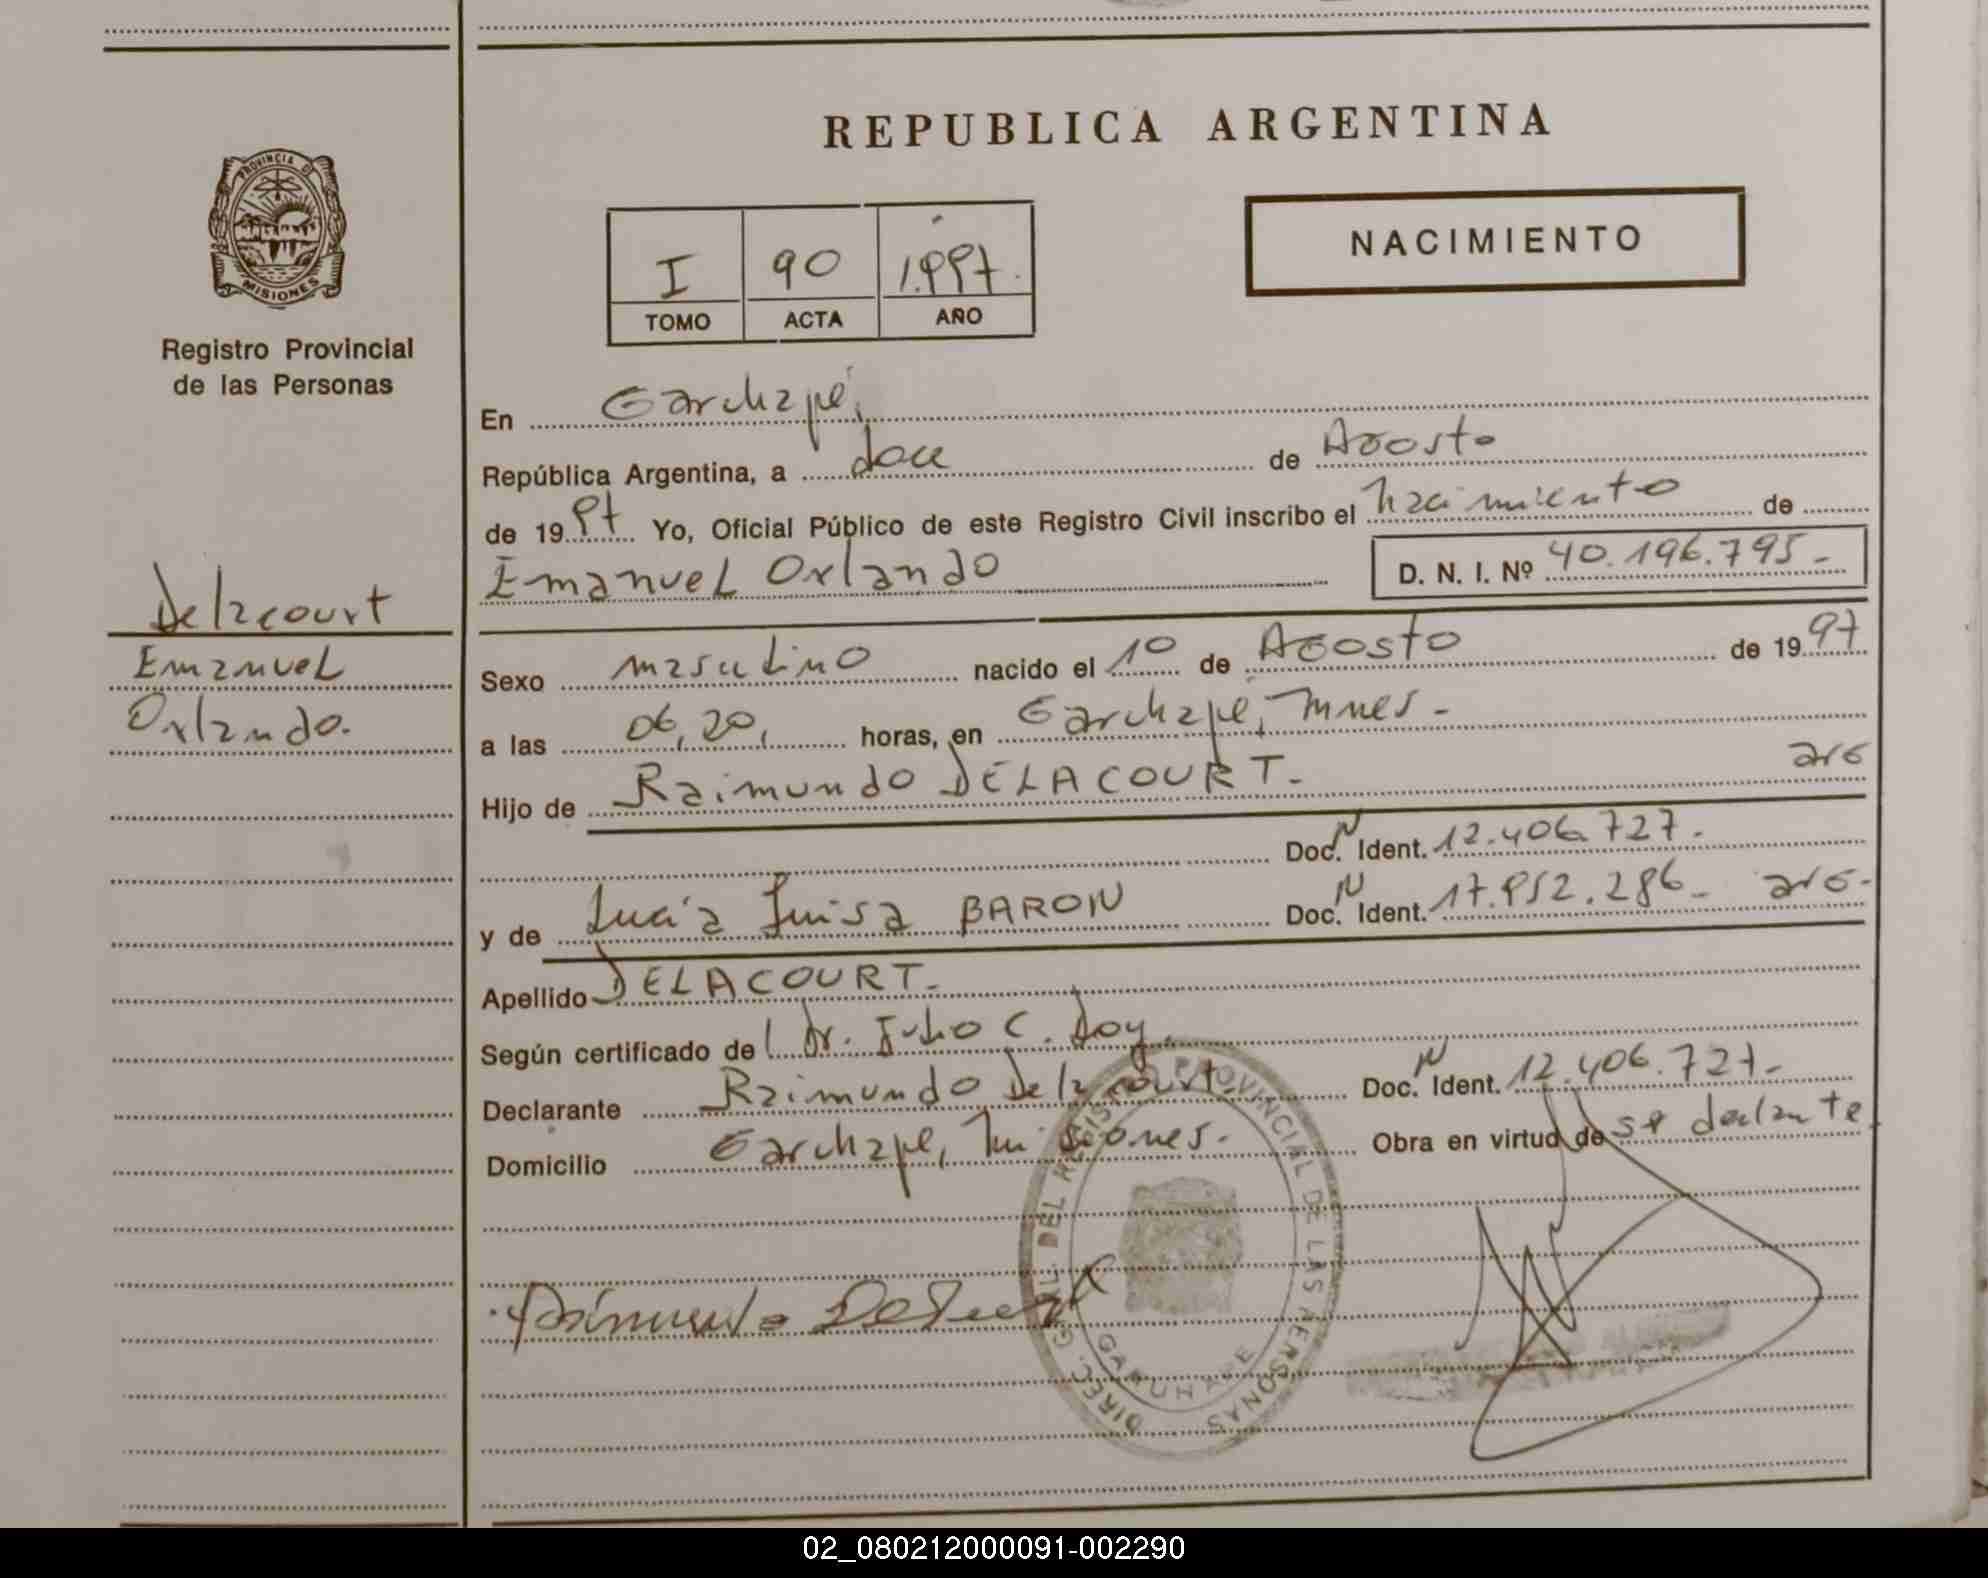 REPUBLICA ARGENTINA
PROVINCIA DE
MISIONES
Registro Provincial
de las Personas
I 90 1.997.
TOMO ACTA AÑO
NACIMIENTO
En Garuhapé,
República Argentina, a doce de Agosto
de 1997 Yo, Oficial Público de este Registro Civil inscribo el nacimiento de
Emanuel Orlando D. N. I. Nº 40.196.795.-
Delacourt
Emanuel
Orlando.
Sexo masculino nacido el 10 de Agosto de 1997
a las 06,20, horas, en Garuhapé, Mnes.-
Hijo de Raimundo DELACOURT.- arg
Doc. N Ident. 12.406.727.-
y de Lucía Luisa BARON Doc. N Ident. 17.952.286.- arg.-
Apellido DELACOURT.-
Según certificado de Dr. Julio C. Doy.
Declarante Raimundo Delacourt.- Doc. N Ident. 12.406.727.-
Domicilio Garuhapé, Misiones.- Obra en virtud de ser declarante
DIREC. GRAL. DEL REGISTRO PROVINCIAL DE LAS PERSONAS
GARUHAPE
02_080212000091-002290